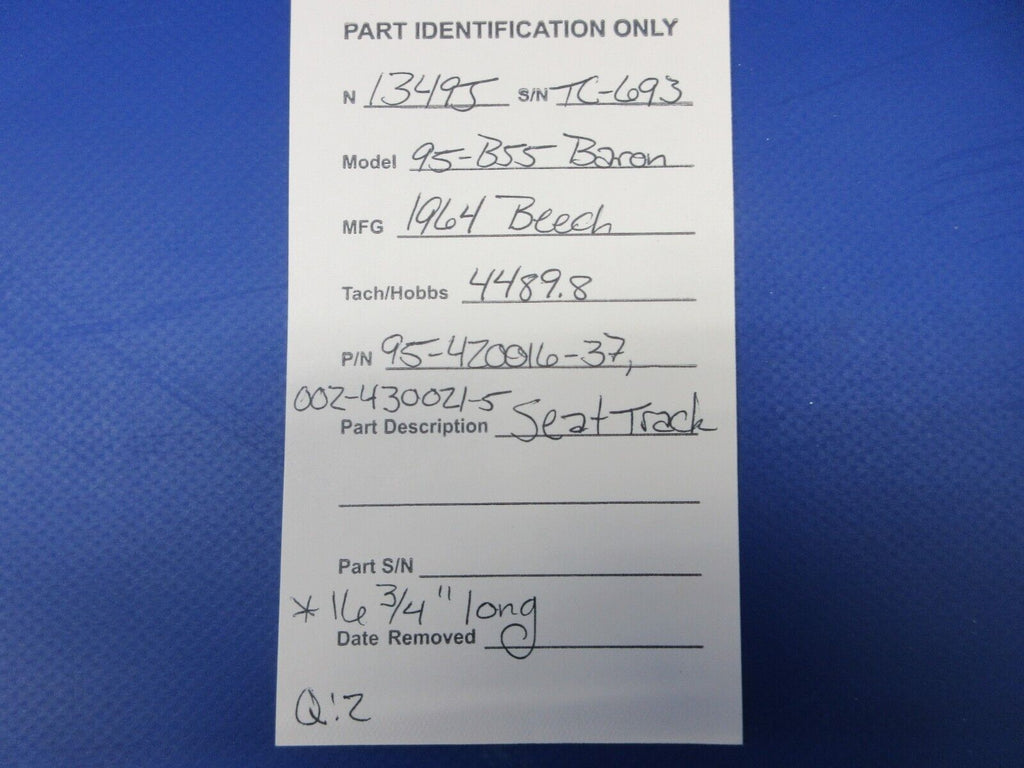 PART IDENTIFICATION ONLY
N 13495 S/N TC-693
Model 95-B55 Baron
MFG 1964 Beech
Tach/Hobbs 4489.8
P/N 95-420016-37,
002-430021-5
Part Description Seat Track
Part S/N
* 16 3/4" long
Date Removed
Q:2